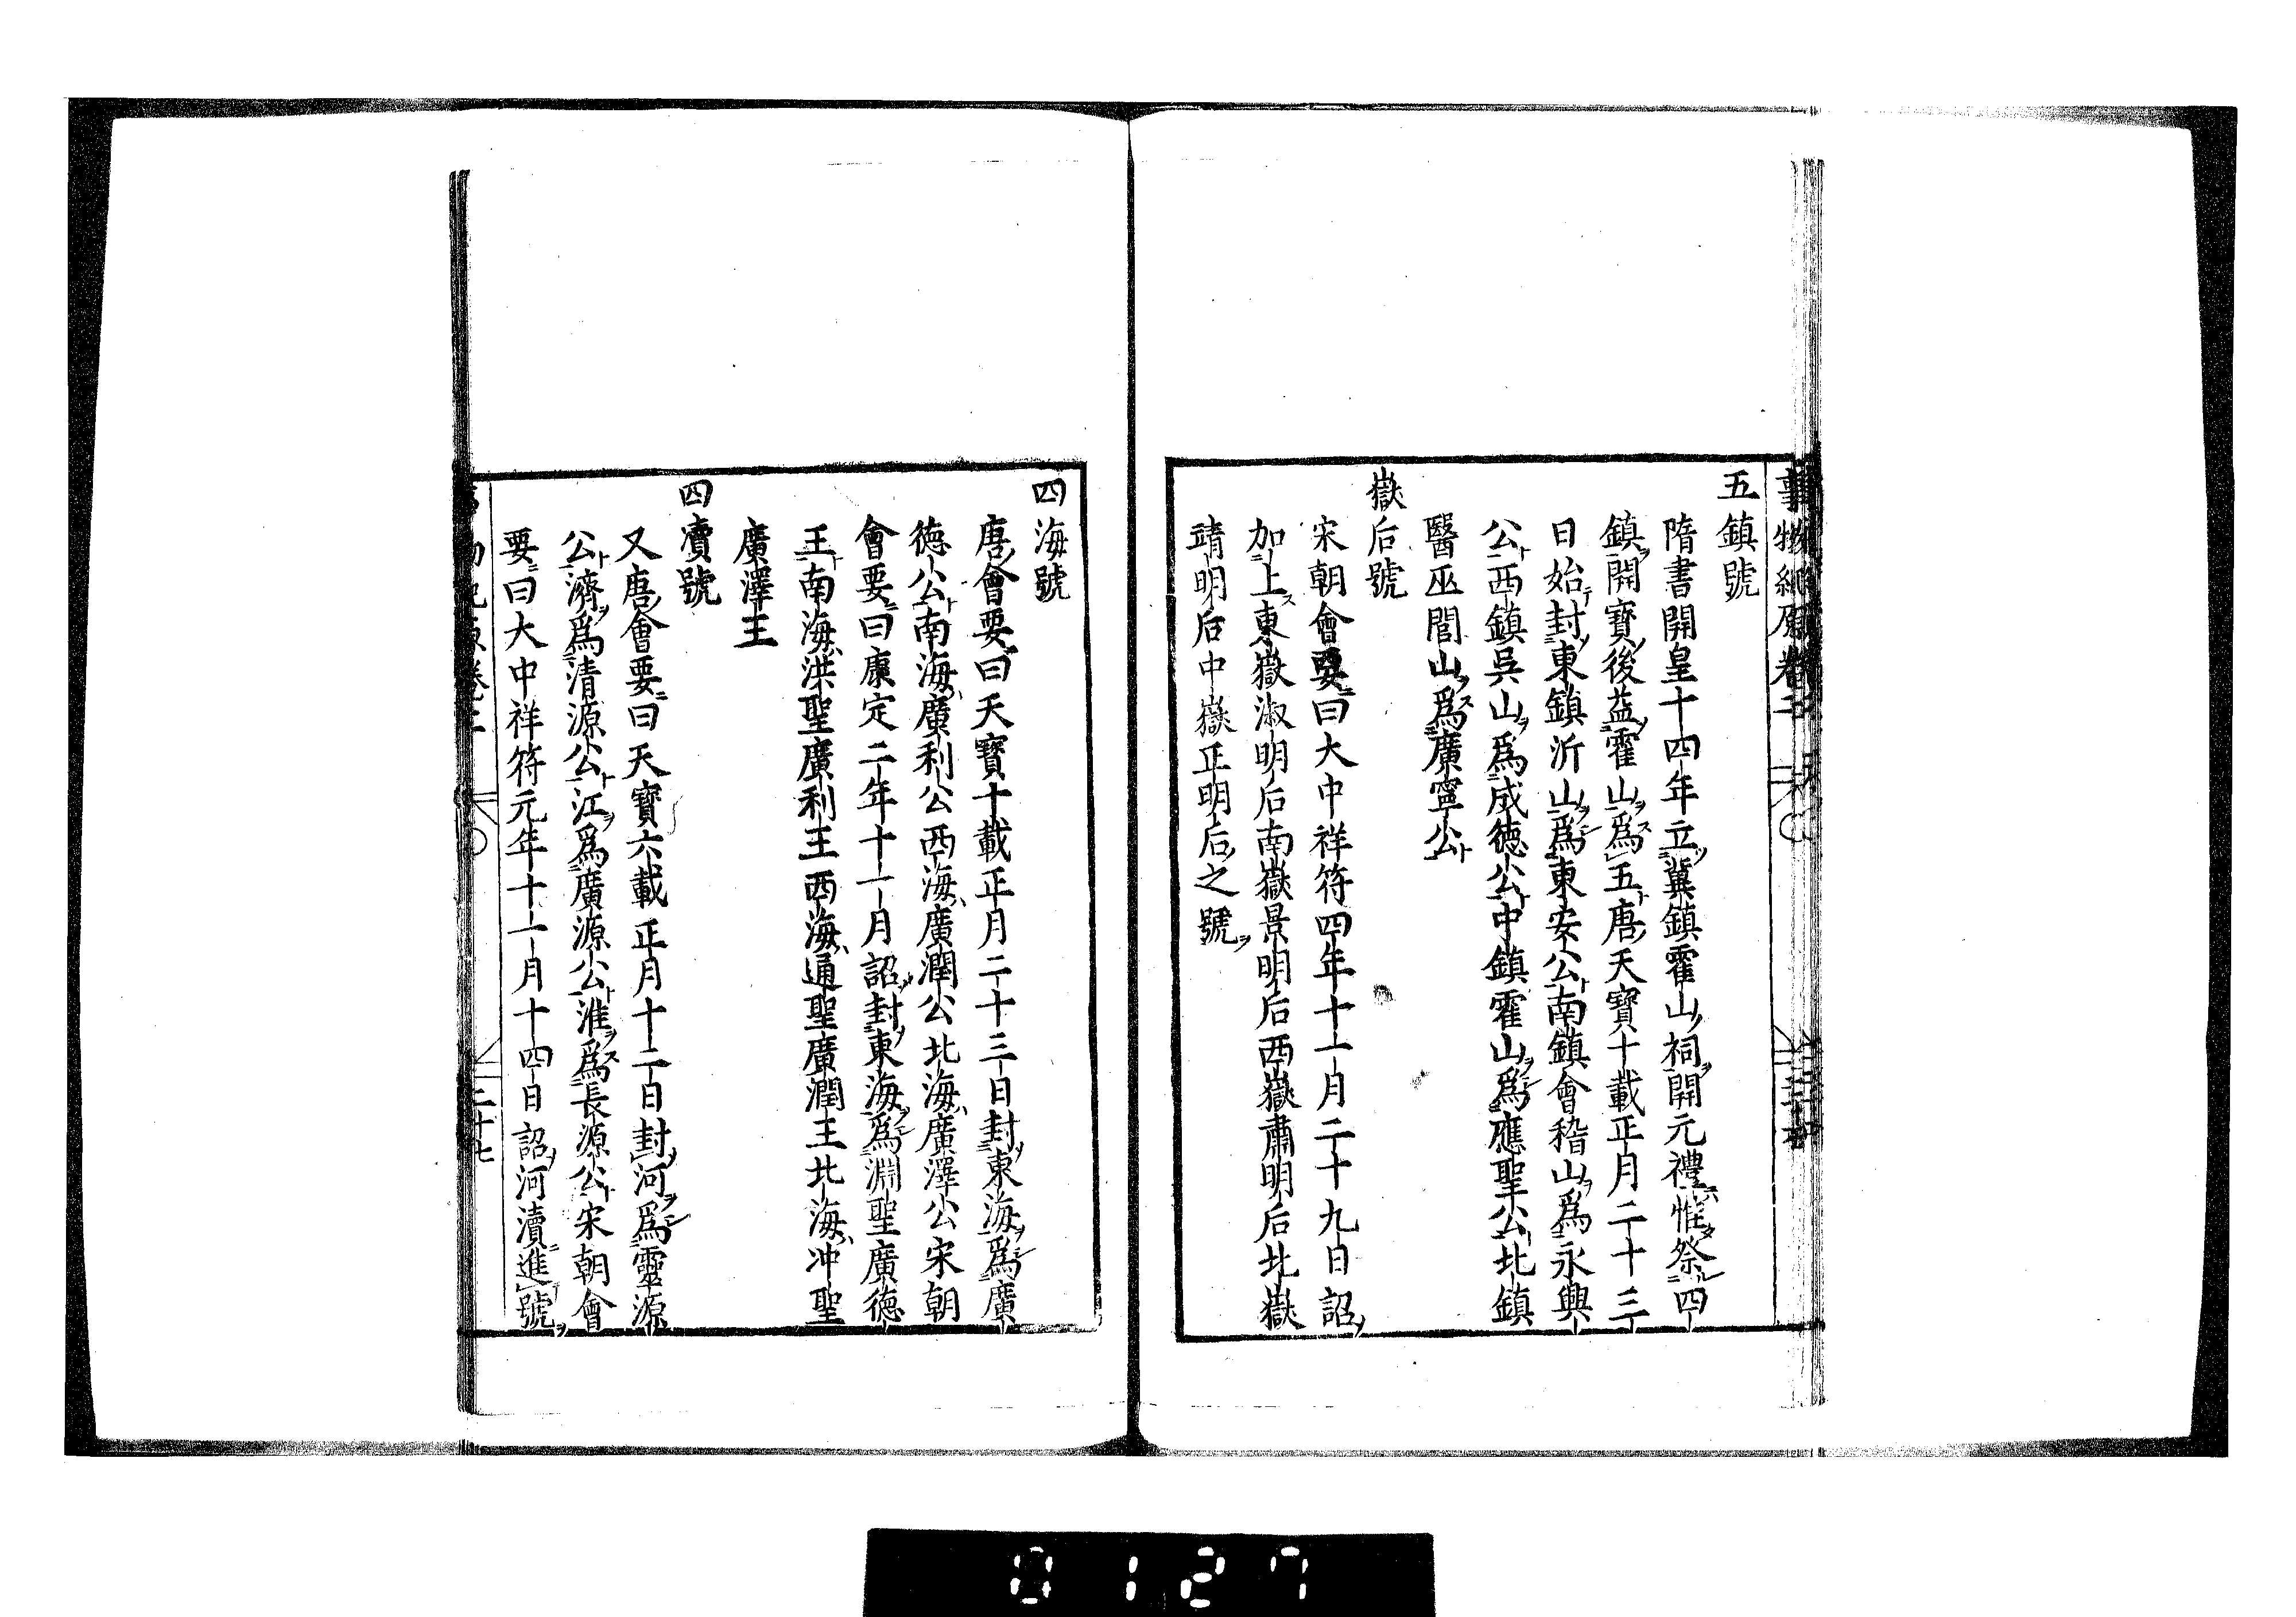 事物紀原卷二
五鎮號
隋書開皇十四年立冀鎮霍山祠開元禮惟祭四
鎮開寶後益霍山爲五唐天寶十載正月二十三
日始封東鎮沂山爲東安公南鎮會稽山爲永興
公西鎮吳山爲成德公中鎮霍山爲應聖公北鎮
醫巫閭山爲廣寧公
嶽后號
宋朝會要曰大中祥符四年十一月二十九日詔
加上東嶽淑明后南嶽景明后西嶽肅明后北嶽
靖明后中嶽正明后之號
四海號
唐會要曰天寶十載正月二十三日封東海爲廣
德公南海廣利公西海廣潤公北海廣澤公宋朝
會要曰康定二年十一月詔封東海爲淵聖廣德
王南海洪聖廣利王西海通聖廣潤王北海冲聖
廣澤王
四瀆號
又唐會要曰天寶六載正月十二日封河爲靈源
公濟爲清源公江爲廣源公淮爲長源公宋朝會
要曰大中祥符元年十一月十四日詔河瀆進號
二十七
0127